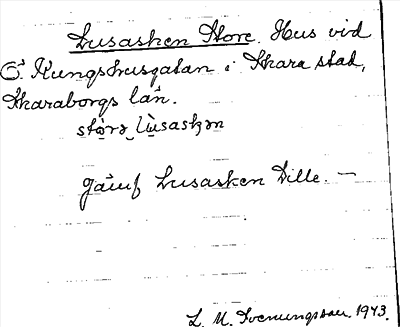 Lusasken Store. Hus vid
Ö. Kungshusgatan i Skara stad,
Skaraborgs län.
stòrə lùsaskən
Jämf Lusasken Lille. —
L. M. Svenungsson 1943.